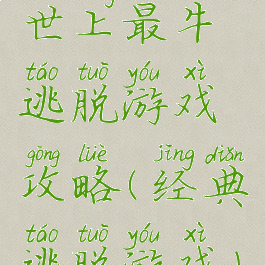 世上最牛
táo tuō yóu xì
逃脱游戏
gōng lüè jīng diǎn
攻略(经典
táo tuō yóu xì
逃脱游戏)